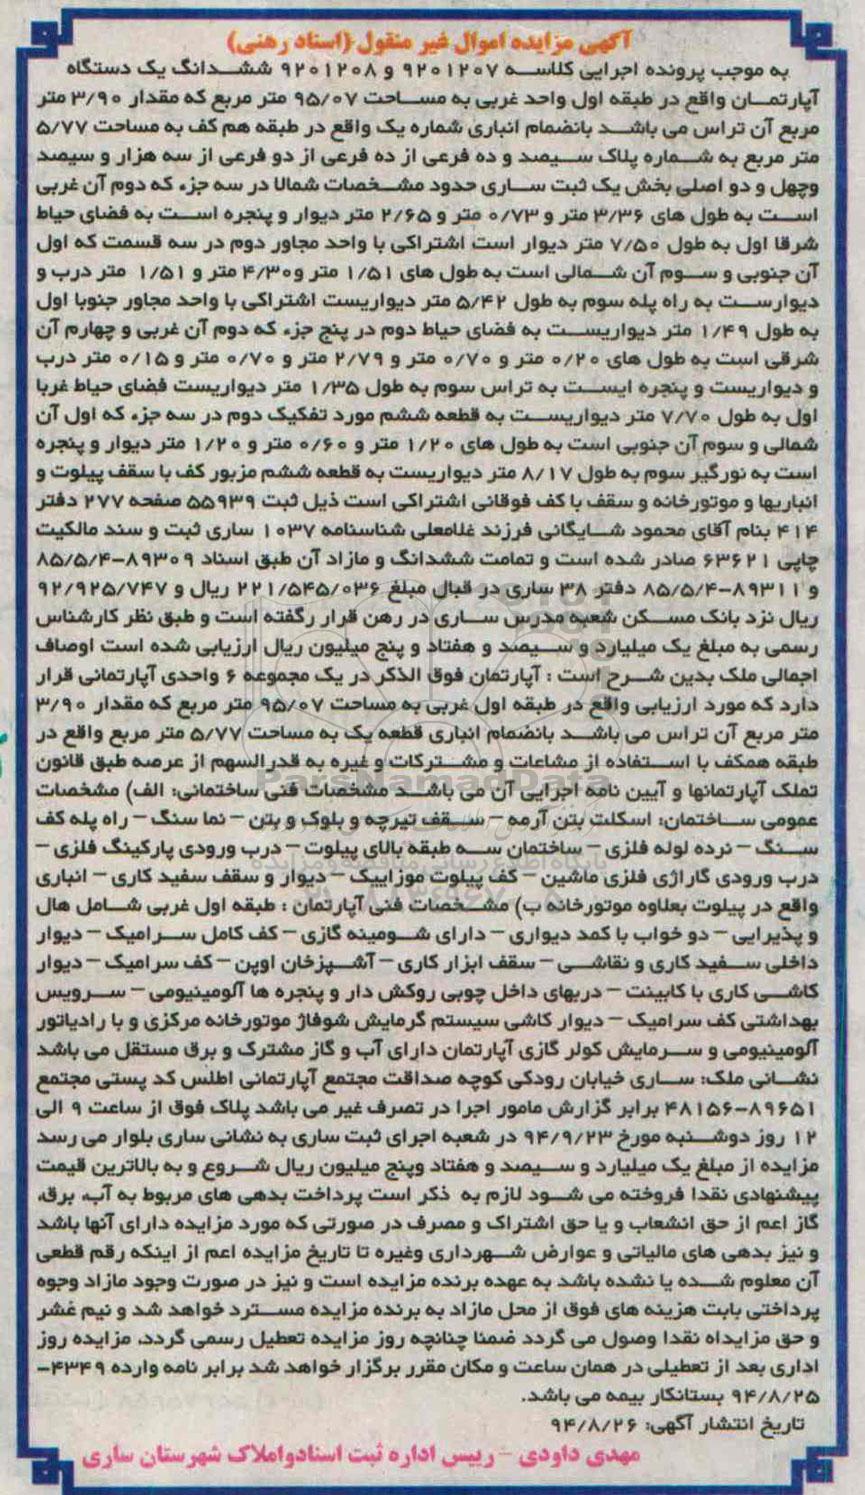 آگهی مزایده اموال غیر منقول (اسناد رهنی)
به موجب پرونده اجرایی کلاسه ۹۲۰۱۲۰۷ و ۹۲۰۱۲۰۸ ششدانگ یک دستگاه
آپارتمان واقع در طبقه اول واحد غربی به مساحت ۹۵/۰۷ متر مربع که مقدار ۳/۹۰ متر
مربع آن تراس می باشد بانضمام انباری شماره یک واقع در طبقه هم کف به مساحت ۵/۷۷
متر مربع به شماره پلاک سیصد و ده فرعی از ده فرعی از دو فرعی از سه هزار و سیصد
وچهل و دو اصلی بخش یک ثبت ساری حدود مشخصات شمالا در سه جزء که دوم آن غربی
است به طول های ۳/۳۶ متر و ۰/۷۳ متر و ۲/۶۵ متر دیوار و پنجره است به فضای حیاط
شرقا اول به طول ۷/۵۰ متر دیوار است اشتراکی با واحد مجاور دوم در سه قسمت که اول
آن جنوبی و سوم آن شمالی است به طول های ۱/۵۱ متر و۴/۳۰ متر و ۱/۵۱ متر درب و
دیوارست به راه پله سوم به طول ۵/۴۲ متر دیواریست اشتراکی با واحد مجاور جنوبا اول
به طول ۱/۴۹ متر دیواریست به فضای حیاط دوم در پنج جزء که دوم آن غربی و چهارم آن
شرقی است به طول های ۰/۲۰ متر و ۰/۷۰ متر و ۲/۷۹ متر و ۰/۷۰ متر و ۰/۱۵ متر درب
و دیواریست و پنجره ایست به تراس سوم به طول ۱/۳۵ متر دیواریست فضای حیاط غربا
اول به طول ۷/۷۰ متر دیواریست به قطعه ششم مورد تفکیک دوم در سه جزء که اول آن
شمالی و سوم آن جنوبی است به طول های ۱/۲۰ متر و ۰/۶۰ متر و ۱/۲۰ متر دیوار و پنجره
است به نورگیر سوم به طول ۸/۱۷ متر دیواریست به قطعه ششم مزبور کف با سقف پیلوت و
انباریها و موتورخانه و سقف با کف فوقانی اشتراکی است ذیل ثبت ۵۵۹۳۹ صفحه ۲۷۷ دفتر
۴۱۴ بنام آقای محمود شایگانی فرزند غلامعلی شناسنامه ۱۰۳۷ ساری ثبت و سند مالکیت
چاپی ۶۳۶۲۱ صادر شده است و تمامت ششدانگ و مازاد آن طبق اسناد ۸۹۳۰۹-۸۵/۵/۴
و ۸۹۳۱۱-۸۵/۵/۴ دفتر ۳۸ ساری در قبال مبلغ ۲۲۱/۵۴۵/۰۳۶ ریال و ۹۲/۹۲۵/۷۴۷
ریال نزد بانک مسکن شعبه مدرس ساری در رهن قرار رگفته است و طبق نظر کارشناس
رسمی به مبلغ یک میلیارد و سیصد و هفتاد و پنج میلیون ریال ارزیابی شده است اوصاف
اجمالی ملک بدین شرح است : آپارتمان فوق الذکر در یک مجموعه ۶ واحدی آپارتمانی قرار
دارد که مورد ارزیابی واقع در طبقه اول غربی به مساحت ۹۵/۰۷ متر مربع که مقدار ۳/۹۰
متر مربع آن تراس می باشد بانضمام انباری قطعه یک به مساحت ۵/۷۷ متر مربع واقع در
طبقه همکف با استفاده از مشاعات و مشترکات و غیره به قدرالسهم از عرصه طبق قانون
تملک آپارتمانها و آیین نامه اجرایی آن می باشد مشخصات فنی ساختمانی: الف) مشخصات
عمومی ساختمان: اسکلت بتن آرمه – سقف تیرچه و بلوک و بتن – نما سنگ – راه پله کف
سنگ – نرده لوله فلزی – ساختمان سه طبقه بالای پیلوت – درب ورودی پارکینگ فلزی –
درب ورودی گاراژی فلزی ماشین – کف پیلوت موزاییک – دیوار و سقف سفید کاری – انباری
واقع در پیلوت بعلاوه موتورخانه ب) مشخصات فنی آپارتمان : طبقه اول غربی شامل هال
و پذیرایی – دو خواب با کمد دیواری – دارای شومینه گازی – کف کامل سرامیک – دیوار
داخلی سفید کاری و نقاشی – سقف ابزار کاری – آشپزخان اوپن – کف سرامیک – دیوار
کاشی کاری با کابینت – دربهای داخل چوبی روکش دار و پنجره ها آلومینیومی – سرویس
بهداشتی کف سرامیک – دیوار کاشی سیستم گرمایش شوفاژ موتورخانه مرکزی و با رادیاتور
آلومینیومی و سرمایش کولر گازی آپارتمان دارای آب و گاز مشترک و برق مستقل می باشد
نشانی ملک: ساری خیابان رودکی کوچه صداقت مجتمع آپارتمانی اطلس کد پستی مجتمع
۸۹۶۵۱-۴۸۱۵۶ برابر گزارش مامور اجرا در تصرف غیر می باشد پلاک فوق از ساعت ۹ الی
۱۲ روز دوشنبه مورخ ۹۴/۹/۲۳ در شعبه اجرای ثبت ساری به نشانی ساری بلوار می رسد
مزایده از مبلغ یک میلیارد و سیصد و هفتاد وپنج میلیون ریال شروع و به بالاترین قیمت
پیشنهادی نقدا فروخته می شود لازم به ذکر است پرداخت بدهی های مربوط به آب، برق،
گاز اعم از حق انشعاب و یا حق اشتراک و مصرف در صورتی که مورد مزایده دارای آنها باشد
و نیز بدهی های مالیاتی و عوارض شهرداری وغیره تا تاریخ مزایده اعم از اینکه رقم قطعی
آن معلوم شده یا نشده باشد به عهده برنده مزایده است و نیز در صورت وجود مازاد وجوه
پرداختی بابت هزینه های فوق از محل مازاد به برنده مزایده مسترد خواهد شد و نیم عشر
و حق مزایداه نقدا وصول می گردد ضمنا چنانچه روز مزایده تعطیل رسمی گردد، مزایده روز
اداری بعد از تعطیلی در همان ساعت و مکان مقرر برگزار خواهد شد برابر نامه وارده ۴۳۴۹-
۹۴/۸/۲۵ بستانکار بیمه می باشد.
تاریخ انتشار آگهی: ۹۴/۸/۲۶
مهدی داودی – رییس اداره ثبت اسنادواملاک شهرستان ساری
ParsNamadData